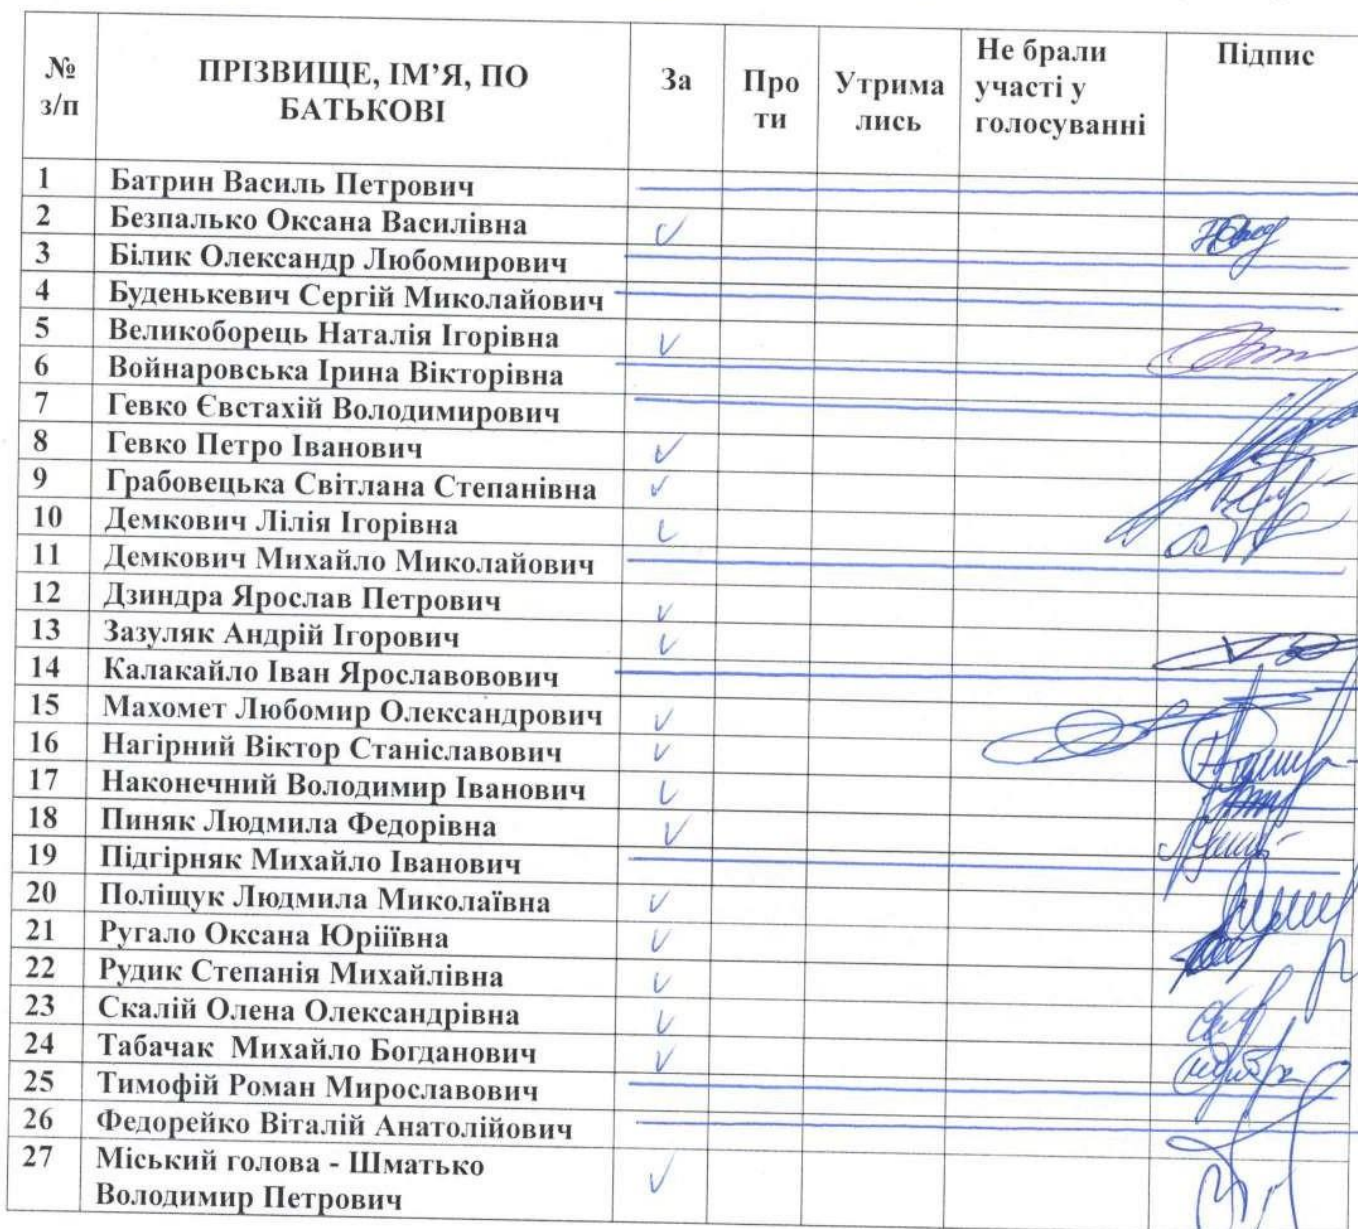 № з/п
ПРІЗВИЩЕ, ІМ’Я, ПО БАТЬКОВІ
За
Про ти
Утрима лись
Не брали участі у голосуванні
Підпис
1 Батрин Василь Петрович
2 Безпалько Оксана Василівна ✓
3 Білик Олександр Любомирович
4 Буденькевич Сергій Миколайович
5 Великоборець Наталія Ігорівна ✓
6 Войнаровська Ірина Вікторівна
7 Гевко Євстахій Володимирович
8 Гевко Петро Іванович ✓
9 Грабовецька Світлана Степанівна ✓
10 Демкович Лілія Ігорівна ✓
11 Демкович Михайло Миколайович
12 Дзиндра Ярослав Петрович ✓
13 Зазуляк Андрій Ігорович ✓
14 Калакайло Іван Ярославовович
15 Махомет Любомир Олександрович ✓
16 Нагірний Віктор Станіславович ✓
17 Наконечний Володимир Іванович ✓
18 Пиняк Людмила Федорівна ✓
19 Підгірняк Михайло Іванович
20 Поліщук Людмила Миколаївна ✓
21 Ругало Оксана Юріїївна ✓
22 Рудик Степанія Михайлівна ✓
23 Скалій Олена Олександрівна ✓
24 Табачак Михайло Богданович ✓
25 Тимофій Роман Мирославович
26 Федорейко Віталій Анатолійович
27 Міський голова - Шматько
Володимир Петрович ✓